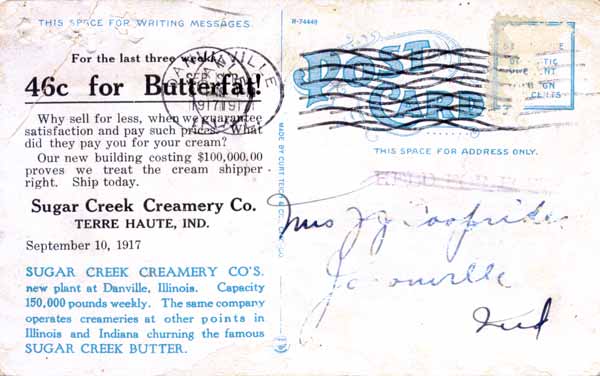 THIS SPACE FOR WRITING MESSAGES.
For the last three weeks
46c for Butterfat!
Why sell for less, when we guarantee
satisfaction and pay such prices. What
did they pay you for your cream?
Our new building costing $100,000.00
proves we treat the cream shipper
right. Ship today.
Sugar Creek Creamery Co.
TERRE HAUTE, IND.
September 10, 1917
SUGAR CREEK CREAMERY CO'S.
new plant at Danville, Illinois. Capacity
150,000 pounds weekly. The same company
operates creameries at other points in
Illinois and Indiana churning the famous
SUGAR CREEK BUTTER.
DANVILLE
SEP
1917
R-74449
MADE BY CURT TEICH
POST
CARD
THIS SPACE FOR ADDRESS ONLY.
Mrs
Ind